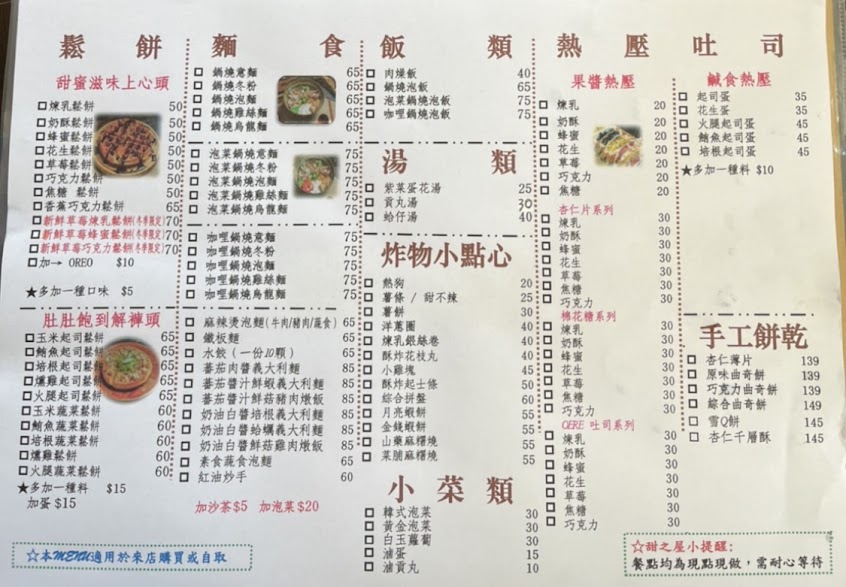 鬆餅
甜蜜滋味上心頭
煉乳鬆餅 50
奶酥鬆餅 50
蜂蜜鬆餅 50
花生鬆餅 50
草莓鬆餅 50
巧克力鬆餅 50
焦糖 鬆餅 50
香蕉巧克力鬆餅 65
新鮮草莓煉乳鬆餅(冬季限定) 70
新鮮草莓蜂蜜鬆餅(冬季限定) 70
新鮮草莓巧克力鬆餅(冬季限定) 70
加→ OREO $10
★多加一種口味 $5
肚肚飽到解褲頭
玉米起司鬆餅 65
鮪魚起司鬆餅 65
培根起司鬆餅 65
燻雞起司鬆餅 65
火腿起司鬆餅 65
玉米蔬菜鬆餅 60
鮪魚蔬菜鬆餅 60
培根蔬菜鬆餅 60
燻雞鬆餅 60
火腿蔬菜鬆餅 60
★多加一種料 $15
加蛋 $15
☆本MENU適用於來店購買或自取
麵食
鍋燒意麵 65
鍋燒冬粉 65
鍋燒泡麵 65
鍋燒雞絲麵 65
鍋燒烏龍麵 65
泡菜鍋燒意麵 75
泡菜鍋燒冬粉 75
泡菜鍋燒泡麵 75
泡菜鍋燒雞絲麵 75
泡菜鍋燒烏龍麵 75
咖哩鍋燒意麵 75
咖哩鍋燒冬粉 75
咖哩鍋燒泡麵 75
咖哩鍋燒雞絲麵 75
咖哩鍋燒烏龍麵 75
麻辣燙泡麵(牛肉/豬肉/蔬食) 65
鐵板麵 55
水餃(一份10顆) 60
蕃茄肉醬義大利麵 85
蕃茄醬汁鮮蝦義大利麵 85
蕃茄醬汁鮮菇豬肉燉飯 85
奶油白醬培根義大利麵 85
奶油白醬蛤蠣義大利麵 85
奶油白醬鮮菇雞肉燉飯 85
素食蔬食泡麵 65
紅油炒手 60
加沙茶$5 加泡菜$20
飯類
肉燥飯 40
鍋燒泡飯 65
泡菜鍋燒泡飯 75
咖哩鍋燒泡飯 75
湯類
紫菜蛋花湯 25
貢丸湯 30
蛤仔湯 40
炸物小點心
熱狗 20
薯條 / 甜不辣 25
薯餅 30
洋蔥圈 40
煉乳銀絲卷 40
酥炸花枝丸 40
小雞塊 45
酥炸起士條 50
綜合拼盤 60
月亮蝦餅 55
金錢蝦餅 55
山藥麻糬燒 55
菜脯麻糬燒 55
小菜類
韓式泡菜 30
黃金泡菜 30
白玉蘿蔔 30
滷蛋 15
滷貢丸 10
熱壓吐司
果醬熱壓
煉乳 20
奶酥 20
蜂蜜 20
花生 20
草莓 20
巧克力 20
焦糖 20
杏仁片系列
煉乳 30
奶酥 30
蜂蜜 30
花生 30
草莓 30
焦糖 30
巧克力 30
棉花糖系列
煉乳 30
奶酥 30
蜂蜜 30
花生 30
草莓 30
焦糖 30
巧克力 30
OERE 吐司系列
煉乳 30
奶酥 30
蜂蜜 30
花生 30
草莓 30
焦糖 30
巧克力 30
鹹食熱壓
起司蛋 35
花生蛋 35
火腿起司蛋 45
鮪魚起司蛋 45
培根起司蛋 45
★多加一種料 $10
手工餅乾
杏仁薄片 139
原味曲奇餅 139
巧克力曲奇餅 139
綜合曲奇餅 149
雪Q餅 145
杏仁千層酥 145
☆甜之屋小提醒:
餐點均為現點現做,需耐心等待